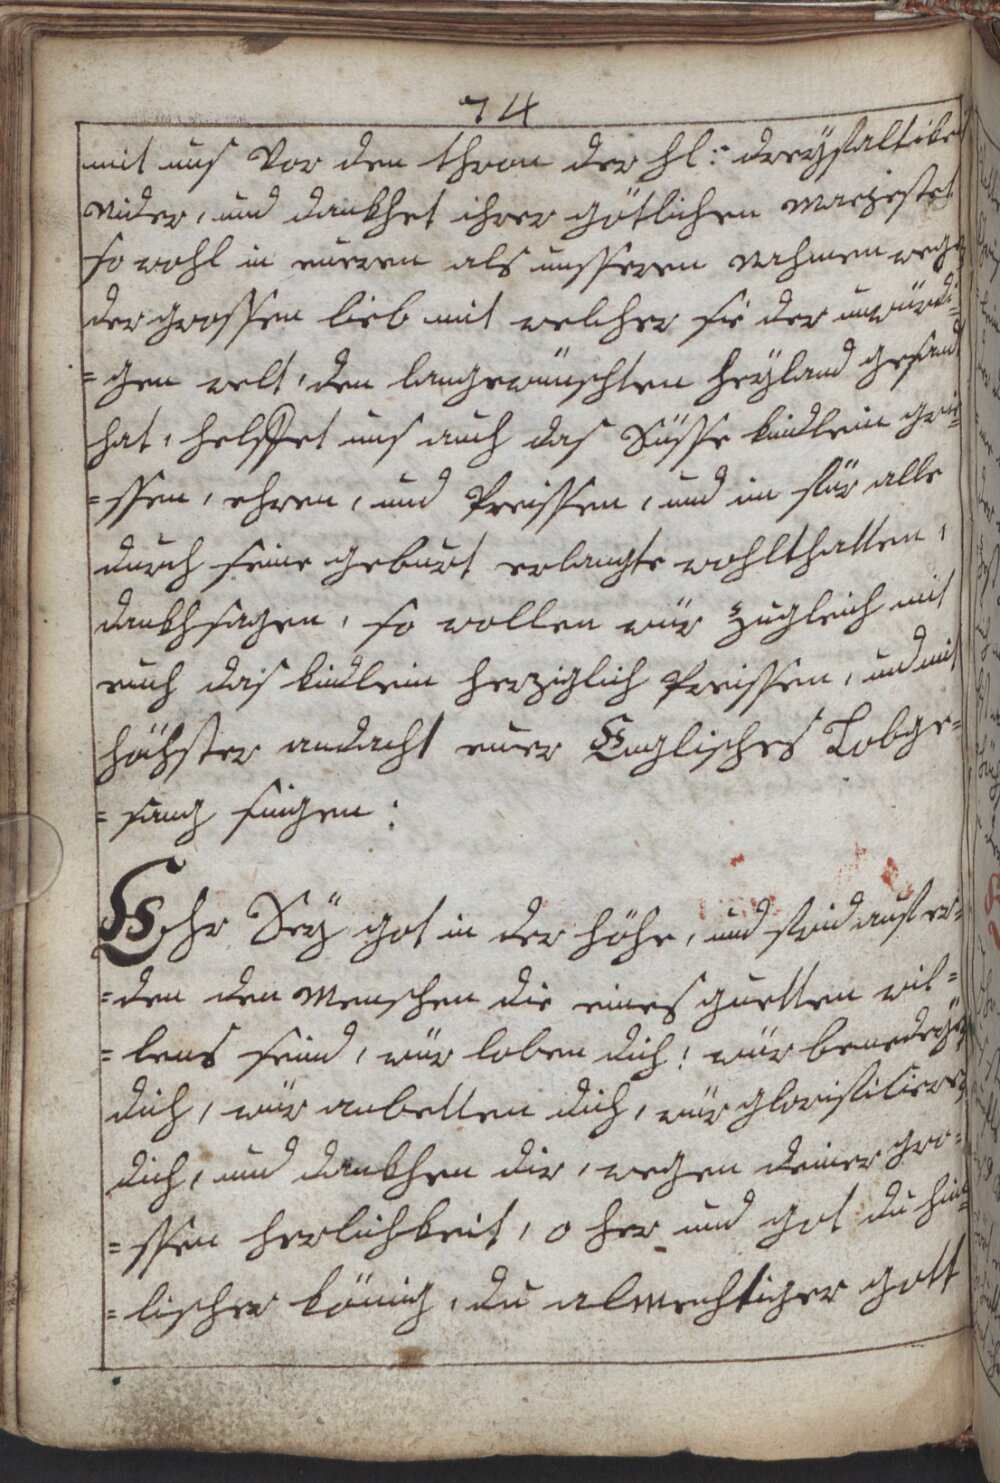 74
mit uns Vor den thron der hl: dreyfaltikei
Nider, und dankhet ihrer götlichen Mayestet
so wohl in eueren als unsseren Nahmen wege
der grossen lieb mit welcher sie der unwürdi-
=gen welt, den langewünschten heyland gesand
hat, helffet uns auch das Süsse kindlein grie-
=ssen, ehren, und Preissen, und im für alle
durch seine geburt erlangte wohlthatten,
dankhsagen, so wollen wür zugleich mit
euch das kindlein herziglich Preissen, und mit
höchster andacht euer Englisches Lobge-
=sang singen:
Ehr Sey got in der höhe, und frid auf er-
=den den Menschen die eines guetten wil-
=lens seind, wür loben dich: wür benedeye
dich, wür anbetten dich, wür glorificieren
dich, und dankhen dir, wegen deiner gro-
=ssen herlichkeit, o her und got du him-
=lischer könig, du almechtiger gott